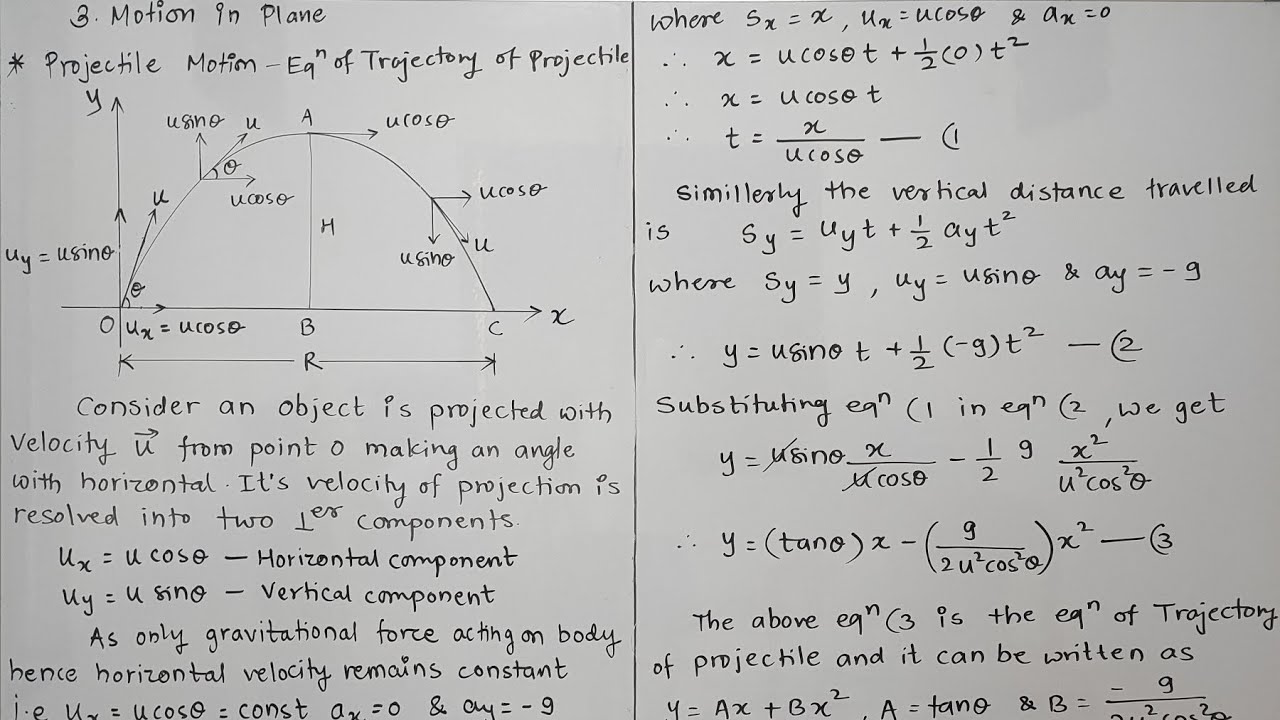 3. Motion in Plane
* Projectile Motion - Eqⁿ of Trajectory of Projectile
y
usinθ u A ucosθ
θ
ucosθ
u
ucosθ
H
usinθ u
u_y = usinθ
θ
O u_x = ucosθ B C x
R
Consider an object is projected with
velocity u⃗ from point O making an angle
with horizontal. It's velocity of projection is
resolved into two ⊥er components.
u_x = u cosθ – Horizontal component
u_y = u sinθ – Vertical component
As only gravitational force acting on body
hence horizontal velocity remains constant
i.e u_x = ucosθ = const a_x = 0 & a_y = - g
where S_x = x , u_x = ucosθ & a_x = 0
∴ x = ucosθ t + ½ (0) t²
∴ x = ucosθ t
∴ t = x / ucosθ — (1
Simillerly the vertical distance travelled
is S_y = u_y t + ½ a_y t²
where S_y = y , u_y = usinθ & a_y = - g
∴ y = usinθ t + ½ (-g) t² — (2
Substituting eqⁿ (1 in eqⁿ (2 , we get
y = usinθ x / ucosθ - ½ g x² / u²cos²θ
∴ y = (tanθ) x - (g / 2u²cos²θ) x² — (3
The above eqⁿ (3 is the eqⁿ of Trajectory
of projectile and it can be written as
y = Ax + Bx² , A = tanθ & B = - g / 2u²cos²θ